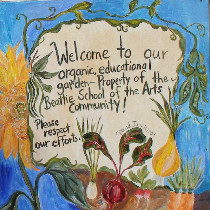 Welcome to our
organic, educational
garden - Property of the
Beattie School of the Arts
Community!
Please
respect
our efforts.